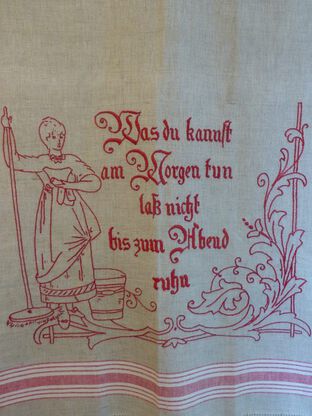 Was du kannst
am Morgen tun
laß nicht
bis zum Abend
ruhn